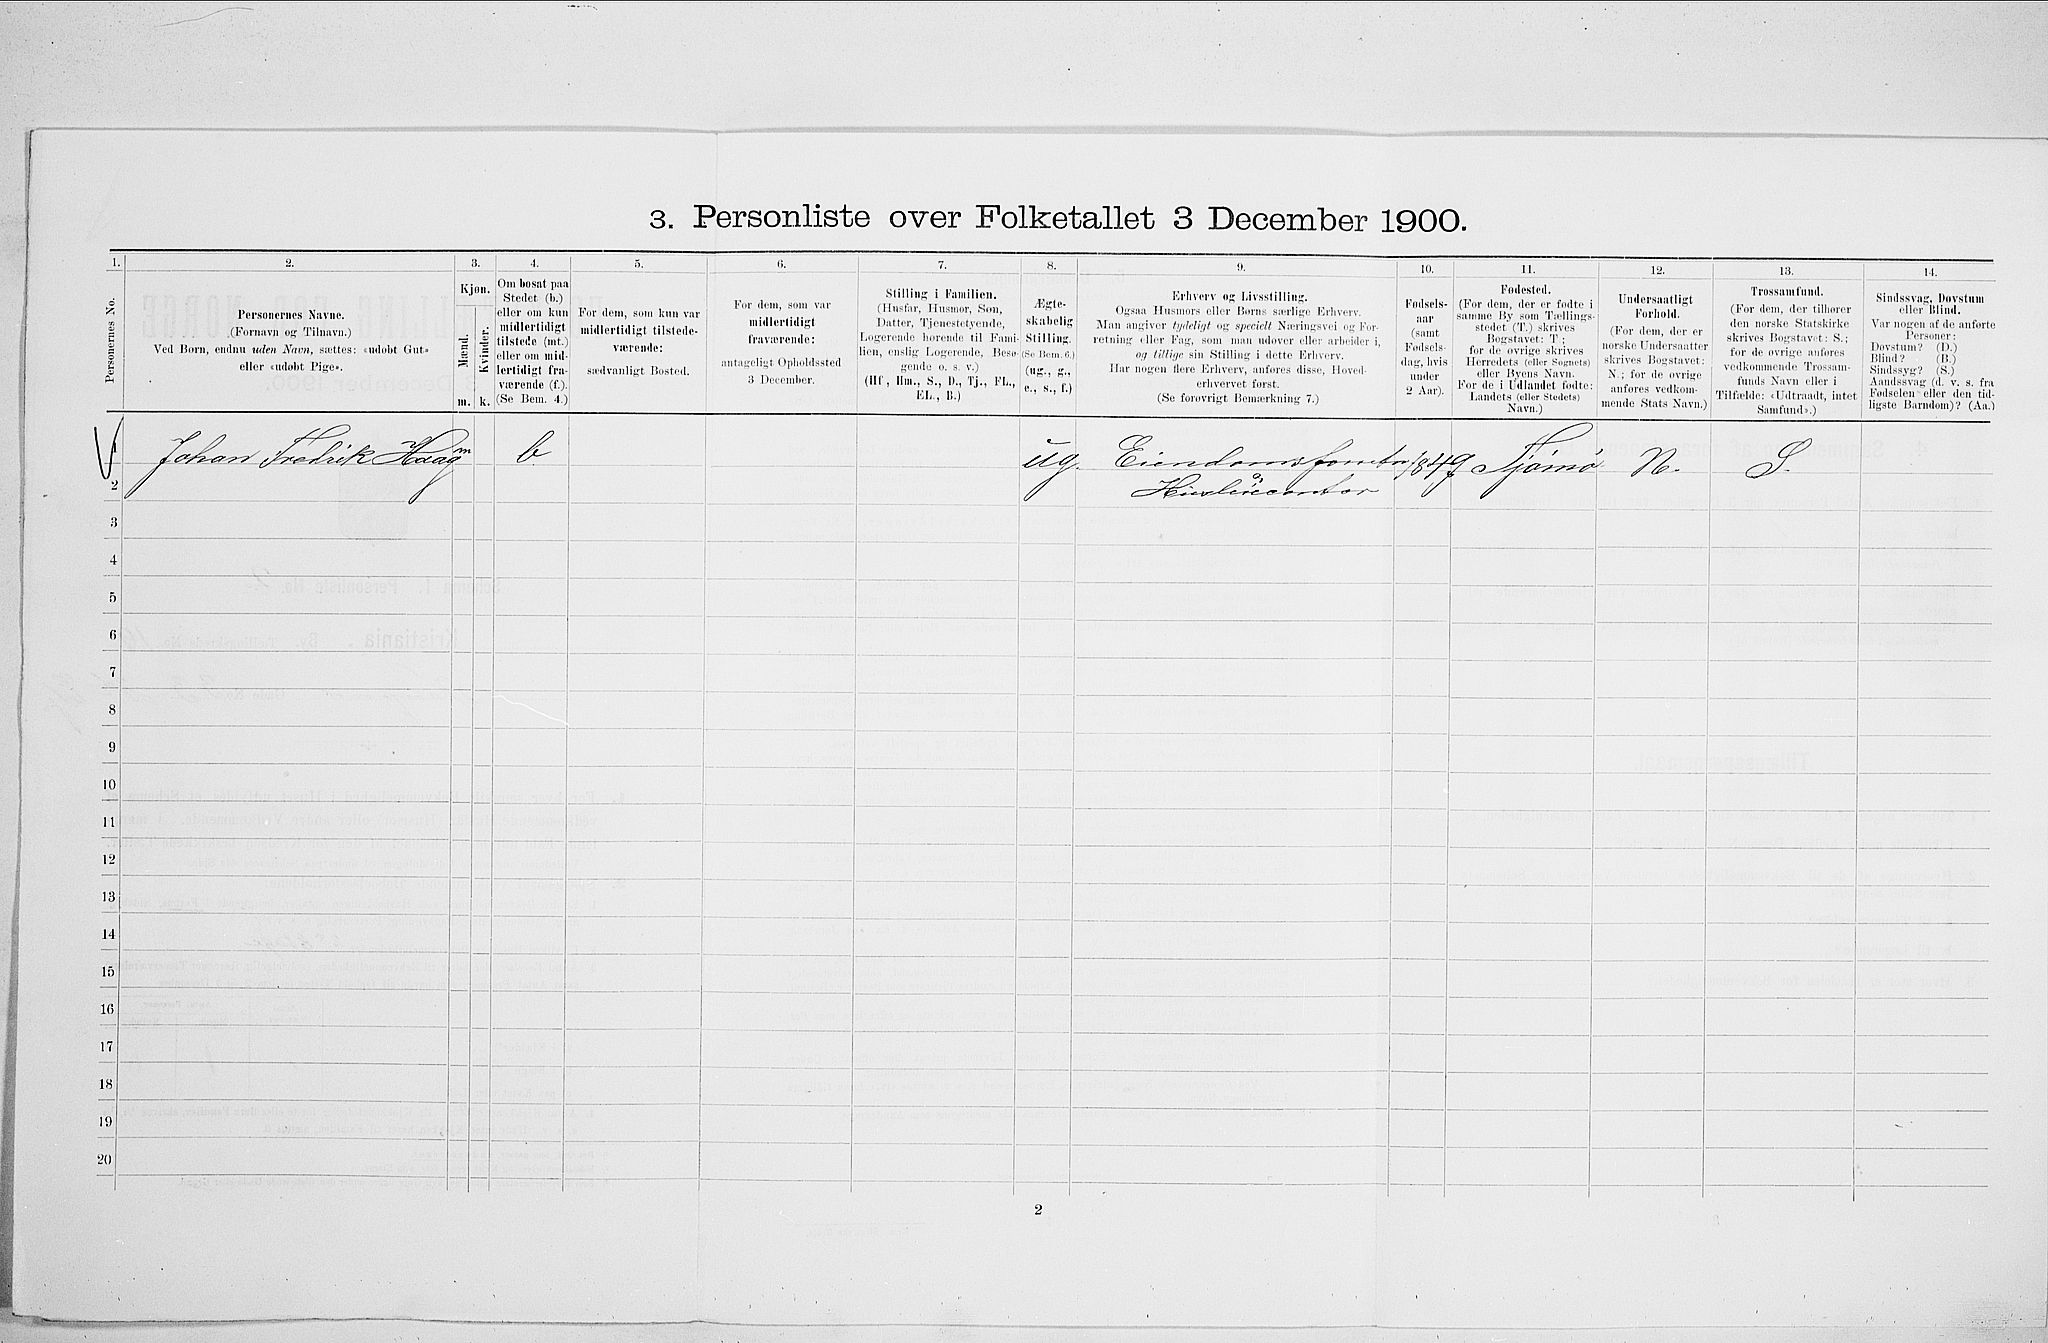 3. Personliste over Folketallet 3 December 1900.
1.
2.
3.
4.
5.
6.
7.
8.
9.
10.
11.
12.
13.
14.
Personernes No.
Personernes Navne.
(Fornavn og Tilnavn.)
Ved Børn, endnu uden Navn, sættes: «udøbt Gut»
eller «udøbt Pige».
Kjøn.
Mænd.
Kvinder.
m.
k.
Om bosat paa
Stedet (b.)
eller om kun
midlertidigt
tilstede (mt.)
eller om mid-
lertidigt fra-
værende (f.).
(Se Bem. 4.)
For dem, som kun var
midlertidigt tilstede-
værende:
sædvanligt Bosted.
For dem, som var
midlertidigt
fraværende:
antageligt Opholdssted
3 December.
Stilling i Familien.
(Husfar, Husmor, Søn,
Datter, Tjenestetyende,
Logerende hørende til Fami-
lien, enslig Logerende, Besø-
gende o. s. v.)
(Hf., Hm., S., D., Tj., FL.,
EL., B.)
Ægte-
skabelig
Stilling.
(Se Bem. 6.)
(ug., g.,
e., s., f.)
Erhverv og Livsstilling.
Ogsaa Husmors eller Børns særlige Erhverv.
Man angiver tydeligt og specielt Næringsvei og For-
retning eller Fag, som man udøver eller arbeider i,
og tillige sin Stilling i dette Erhverv.
Har nogen flere Erhverv, anføres disse, Hoved-
erhvervet først.
(Se forøvrigt Bemærkning 7.)
Fødsels-
aar
(samt
Fødsels-
dag, hvis
under
2 Aar).
Fødested.
(For dem, der er fødte i
samme By som Tællings-
stedet (T.) skrives
Bogstavet: T ;
for de øvrige skrives
Herredets (eller Sognets)
eller Byens Navn.
For de i Udlandet fødte:
Landets (eller Stedets)
Navn.)
Undersaatligt
Forhold.
(For dem, der er
norske Undersaatter
skrives Bogstavet:
N.; for de øvrige
anføres vedkom-
mende Stats Navn.)
Trossamfund.
(For dem, der tilhører
den norske Statskirke
skrives Bogstavet: S.;
for de øvrige anføres
vedkommende Trossam-
funds Navn eller i
Tilfælde: «Udtraadt, intet
Samfund».)
Sindssvag, Døvstum
eller Blind.
Var nogen af de anførte
Personer:
Døvstum? (D.)
Blind? (B.)
Sindssyg? (S.)
Aandssvag (d. v. s. fra
Fødselen eller den tid-
ligste Barndom)? (Aa.)
Johan Fredrik Haag m b ug. 1849 Tjømø N. S.
2
3
4
5
6
7
8
9
10
11
12
13
14
15
16
17
18
19
20
2